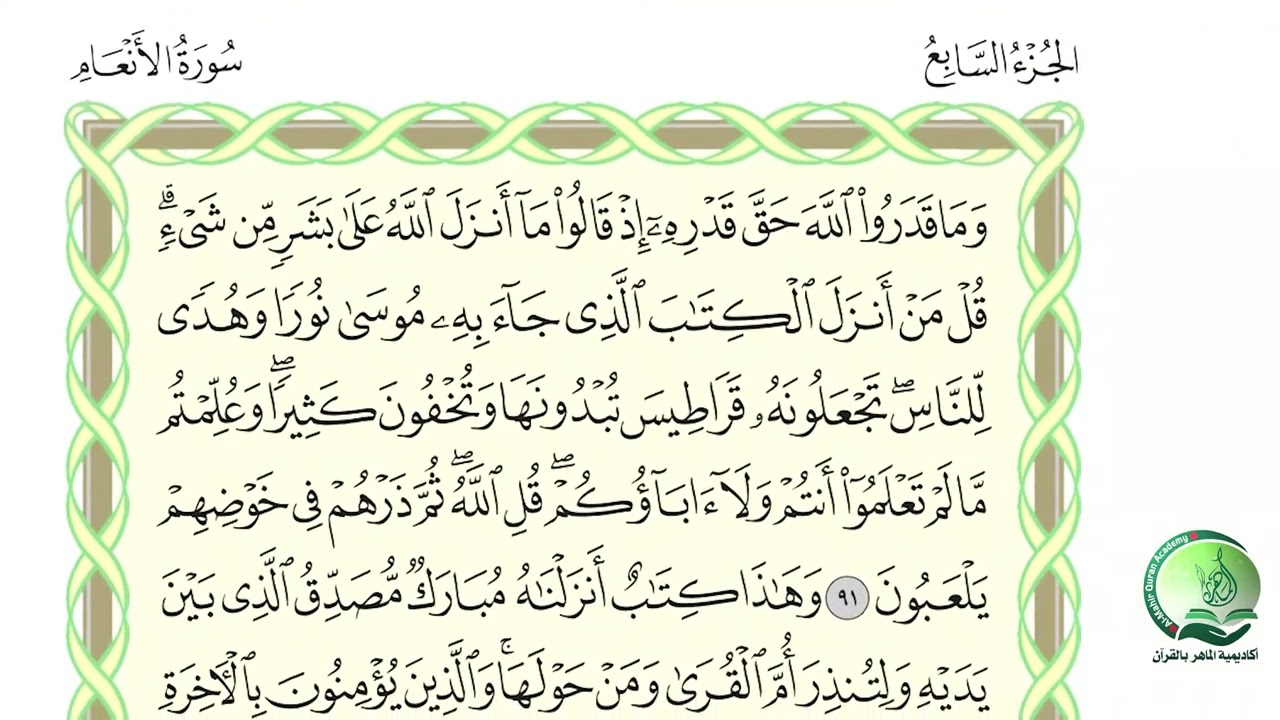 الجُزْءُ السَّابِعُ
سُورَةُ الأَنْعَامِ
وَمَا قَدَرُواْ ٱللَّهَ حَقَّ قَدْرِهِۦٓ إِذْ قَالُواْ مَآ أَنزَلَ ٱللَّهُ عَلَىٰ بَشَرٍ مِّن شَىْءٍ ۗ
قُلْ مَنْ أَنزَلَ ٱلْكِتَـٰبَ ٱلَّذِى جَآءَ بِهِۦ مُوسَىٰ نُورًا وَهُدًى
لِّلنَّاسِ ۖ تَجْعَلُونَهُۥ قَرَاطِيسَ تُبْدُونَهَا وَتُخْفُونَ كَثِيرًا ۖ وَعُلِّمْتُم
مَّا لَمْ تَعْلَمُوٓاْ أَنتُمْ وَلَآ ءَابَآؤُكُمْ ۖ قُلِ ٱللَّهُ ۖ ثُمَّ ذَرْهُمْ فِى خَوْضِهِمْ
يَلْعَبُونَ ٩١ وَهَـٰذَا كِتَـٰبٌ أَنزَلْنَـٰهُ مُبَارَكٌ مُّصَدِّقُ ٱلَّذِى بَيْنَ
يَدَيْهِ وَلِتُنذِرَ أُمَّ ٱلْقُرَىٰ وَمَنْ حَوْلَهَا ۚ وَٱلَّذِينَ يُؤْمِنُونَ بِٱلْـَٔاخِرَةِ
Al-Mahir Quran Academy
الماهر
أكاديمية الماهر بالقرآن